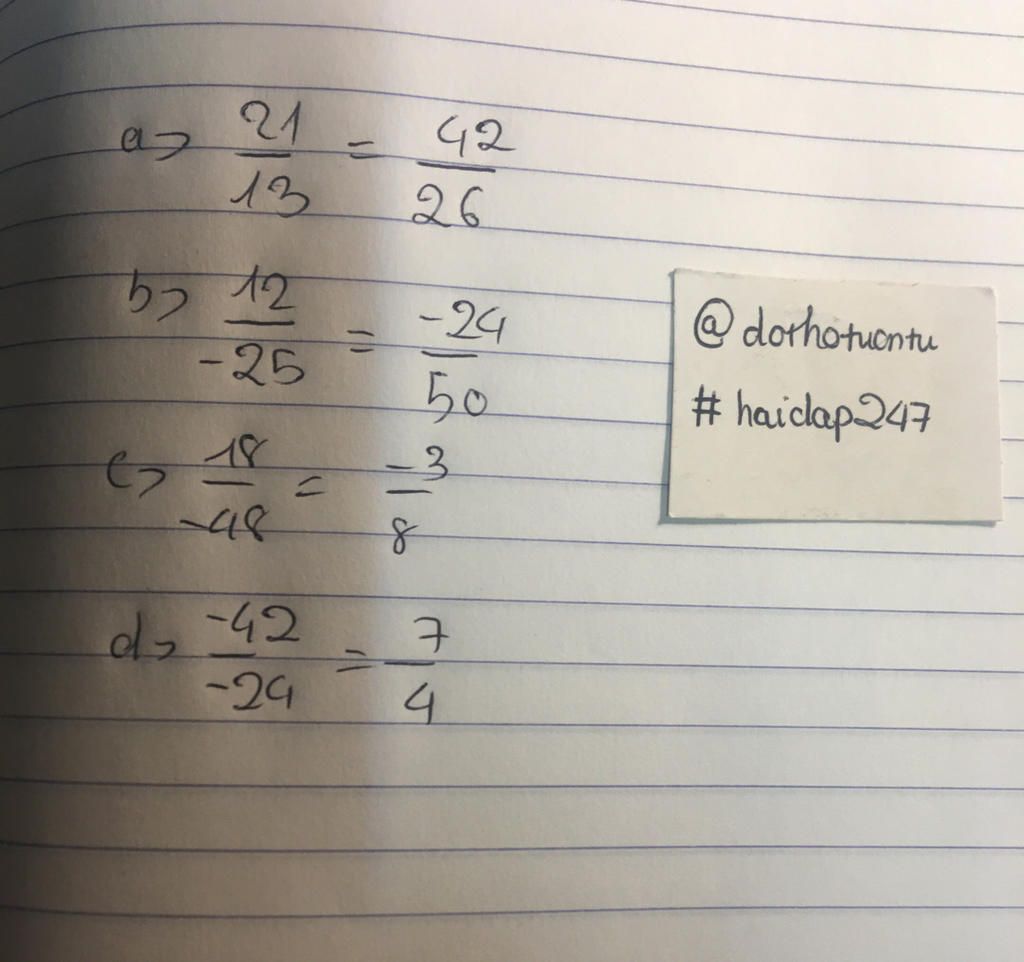 a> 21/13 = 42/26
b> 12/-25 = -24/50
c> 18/-48 = -3/8
d> -42/-24 = 7/4
@dorhotuontu
#haidap247